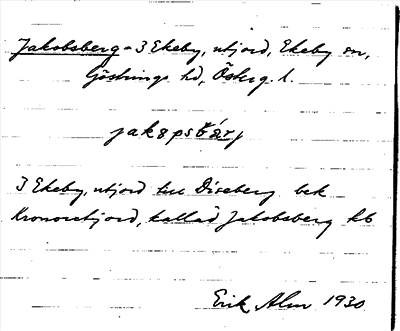 Jakobsberg = 3 Ekeby, utjord, Ekeby sn,
Göstrings hd, Österg. l.
jakåpsbärj
3 Ekeby, utjord till Diseberg
Kronoutjord, kallad Jakobsberg hb
Erik Alm 1930